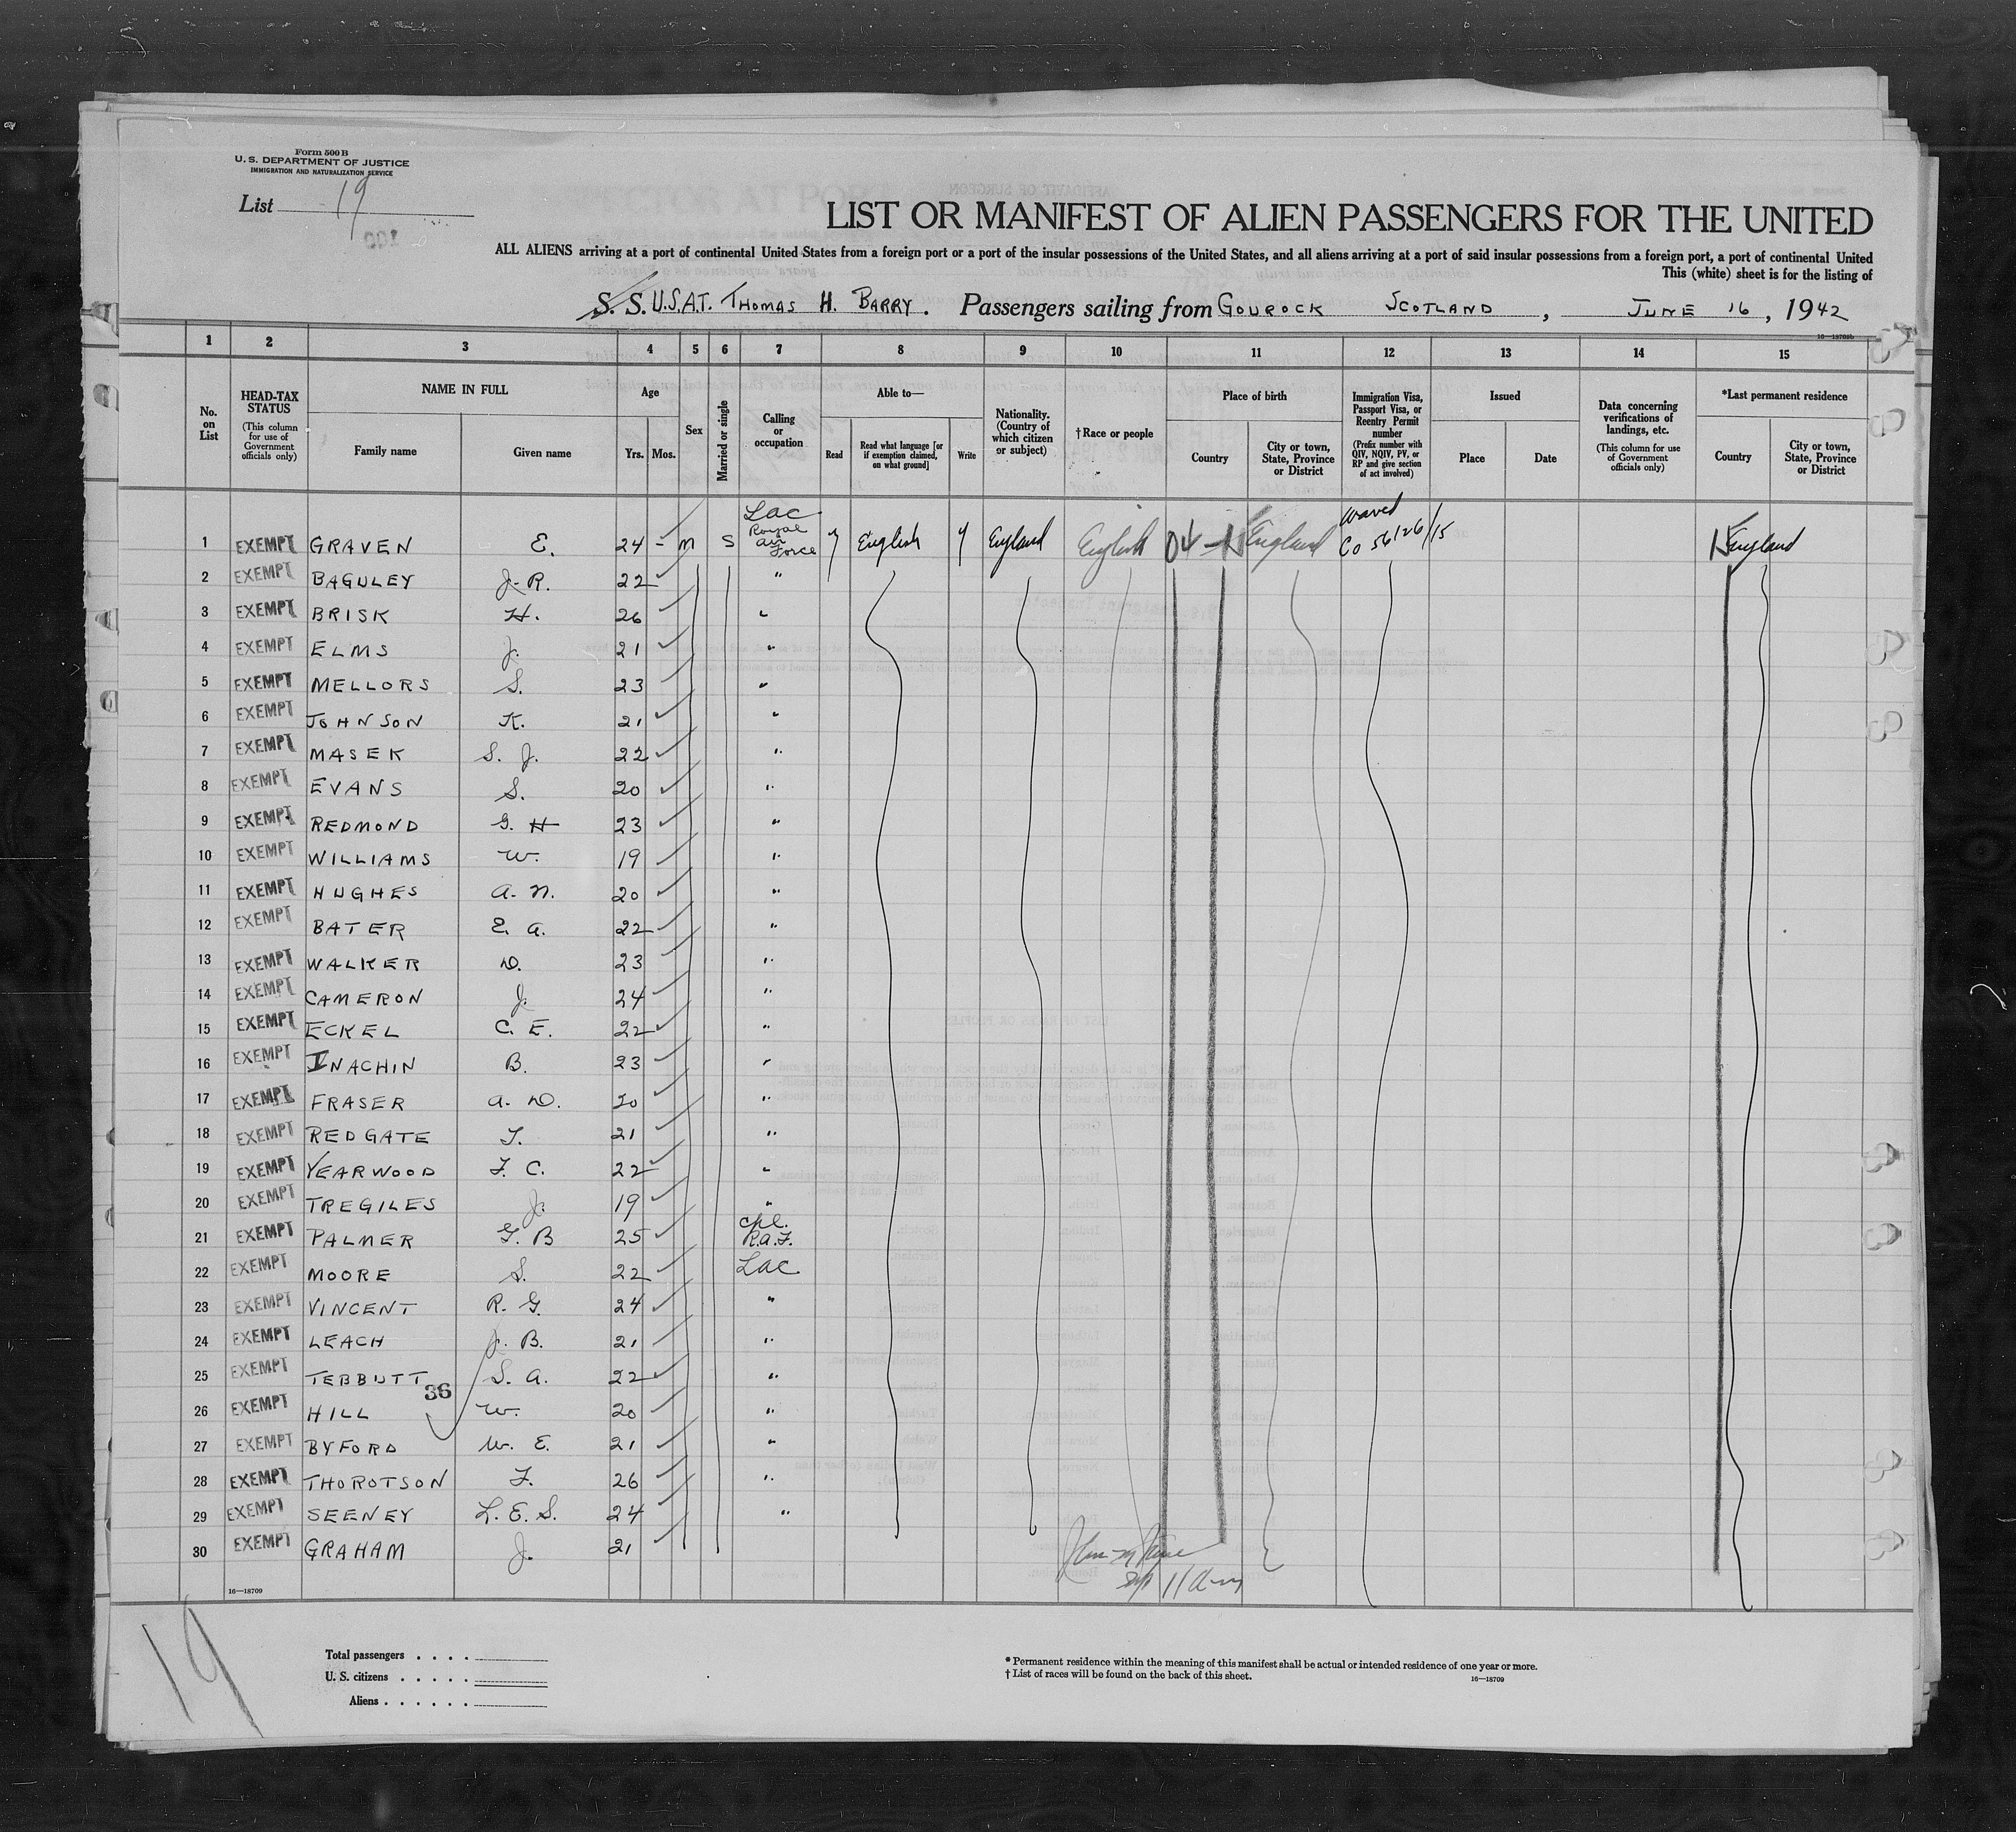 Form 500 B
U. S. DEPARTMENT OF JUSTICE
IMMIGRATION AND NATURALIZATION SERVICE
List 19
LIST OR MANIFEST OF ALIEN PASSENGERS FOR THE UNITED
ALL ALIENS arriving at a port of continental United States from a foreign port or a port of the insular possessions of the United States, and all aliens arriving at a port of said insular possessions from a foreign port, a port of continental United
This (white) sheet is for the listing of
S. S. U.S.A.T. THOMAS H. BARRY. Passengers sailing from GOUROCK SCOTLAND, JUNE 16, 1942
16—18709b
1 2 3 4 5 6 7 8 9 10 11 12 13 14 15
No. on List
HEAD-TAX STATUS
(This column for use of Government officials only)
NAME IN FULL
Family name
Given name
Age
Yrs. Mos.
Sex
Married or single
Calling or occupation
Able to—
Read
Read what language [or if exemption claimed, on what ground]
Write
Nationality. (Country of which citizen or subject)
† Race or people
Place of birth
Country
City or town, State, Province or District
Immigration Visa, Passport Visa, or Reentry Permit number
(Prefix number with QIV, NQIV, PV, or RP and give section of act involved)
Issued
Place
Date
Data concerning verifications of landings, etc.
(This column for use of Government officials only)
*Last permanent residence
Country
City or town, State, Province or District
1 EXEMPT GRAVEN E. 24 - M S Lac Royal Air Force y English y England English England waved Co 56126/15 England
2 EXEMPT BAGULEY J. R. 22 "
3 EXEMPT BRISK H. 26 "
4 EXEMPT ELMS J. 21 "
5 EXEMPT MELLORS S. 23 "
6 EXEMPT JOHNSON K. 21 "
7 EXEMPT MASEK S. J. 22 "
8 EXEMPT EVANS S. 20 "
9 EXEMPT REDMOND G. H 23 "
10 EXEMPT WILLIAMS W. 19 "
11 EXEMPT HUGHES A. N. 20 "
12 EXEMPT BATER E. A. 22 "
13 EXEMPT WALKER D. 23 "
14 EXEMPT CAMERON J. 24 "
15 EXEMPT ECKEL C. E. 22 "
16 EXEMPT INACHIN B. 23 "
17 EXEMPT FRASER A. D. 20 "
18 EXEMPT REDGATE T. 21 "
19 EXEMPT YEARWOOD F. C. 22 "
20 EXEMPT TREGILES J. 19 "
21 EXEMPT PALMER G. B 25 cpl. R.A.F.
22 EXEMPT MOORE S. 22 Lac
23 EXEMPT VINCENT R. G. 24 "
24 EXEMPT LEACH J. B. 21 "
25 EXEMPT TEBBUTT S. A. 22 "
36
26 EXEMPT HILL W. 20 "
27 EXEMPT BYFORD W. E. 21 "
28 EXEMPT THOROTSON F. 26 "
29 EXEMPT SEENEY L. E. S. 24 "
30 EXEMPT GRAHAM J. 21
16—18709
19
Total passengers
U. S. citizens
Aliens
* Permanent residence within the meaning of this manifest shall be actual or intended residence of one year or more.
† List of races will be found on the back of this sheet.
16—18709